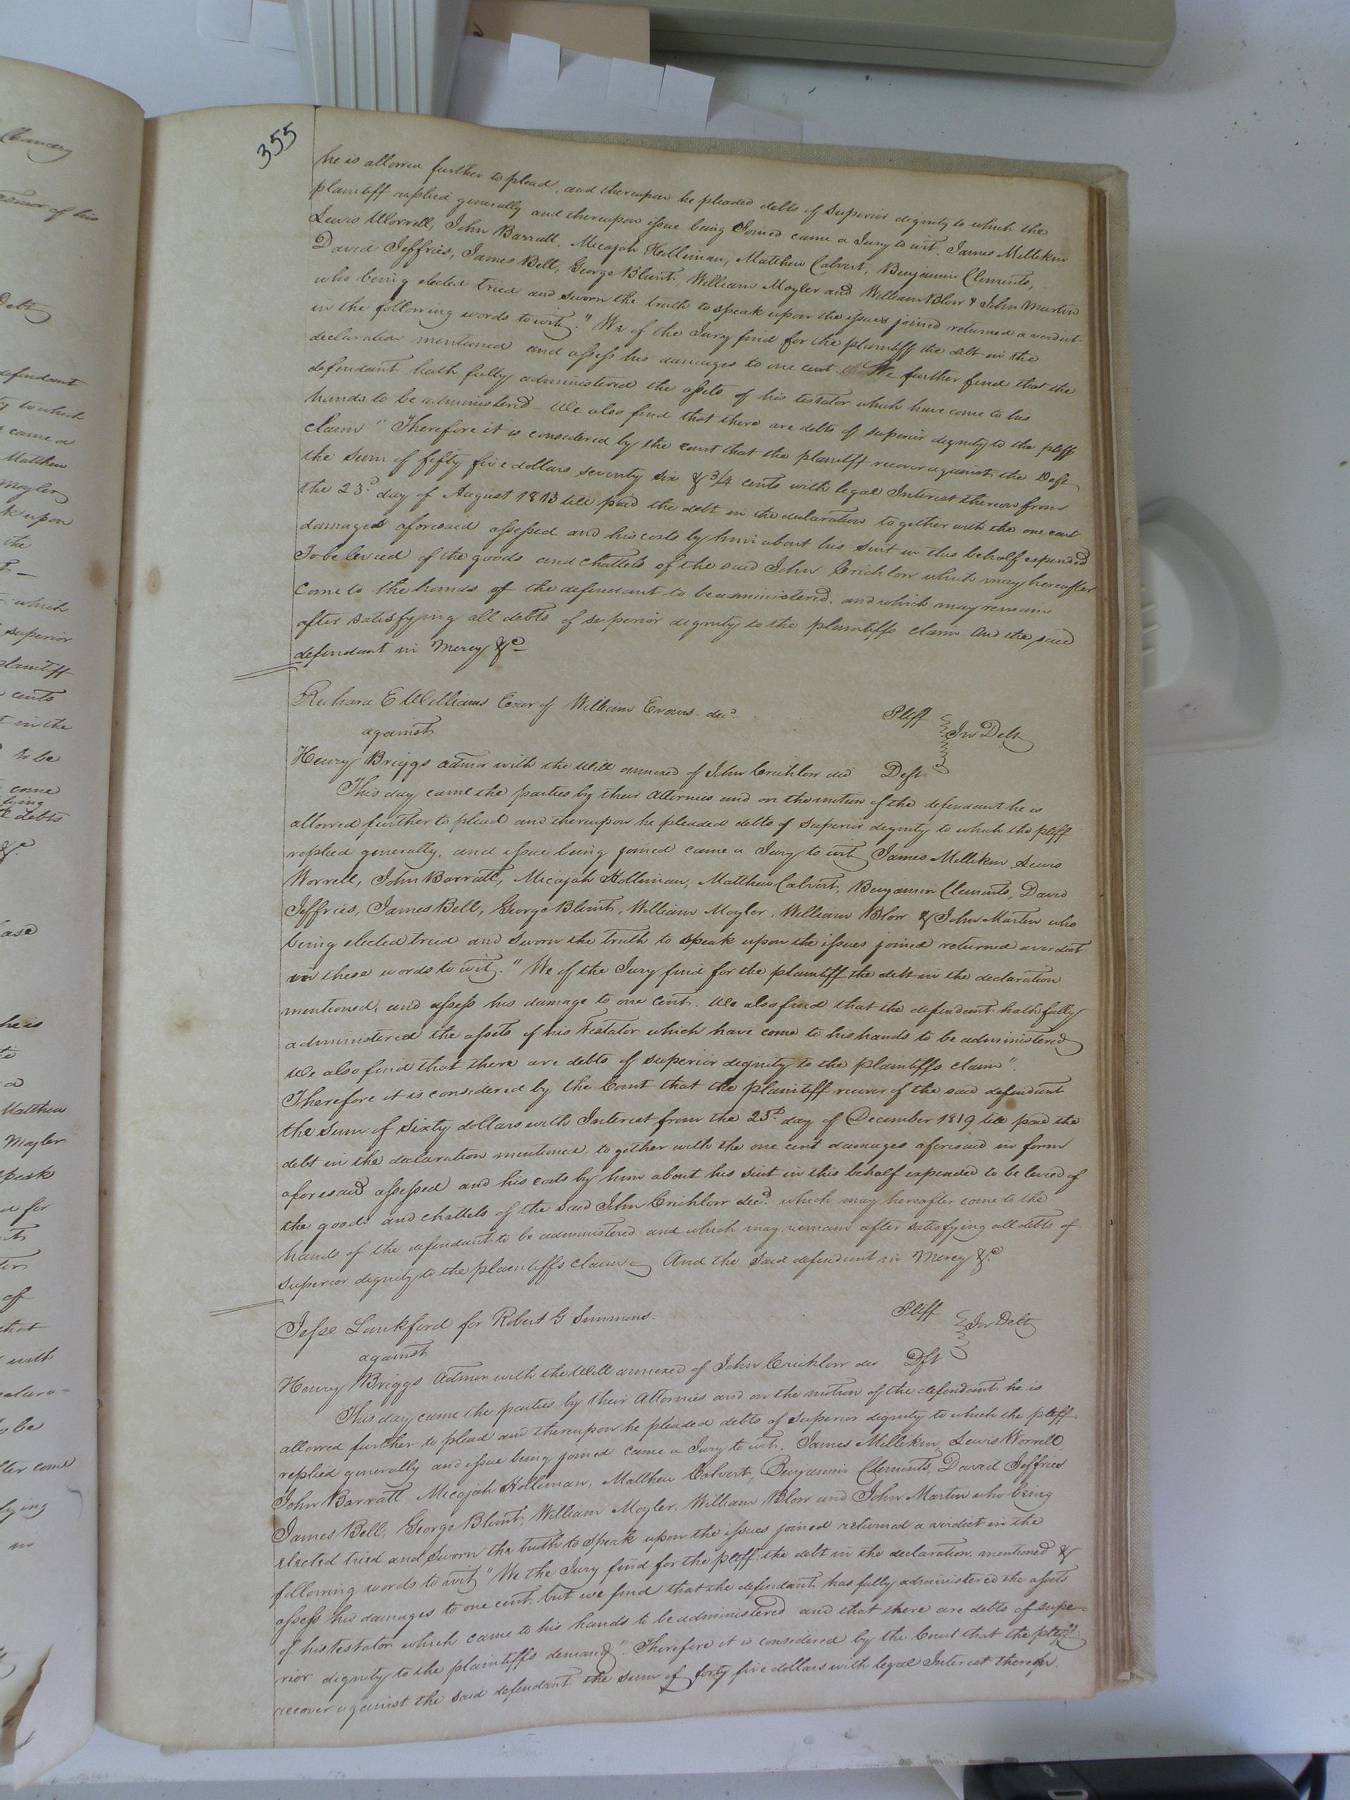 355
he is allowed further to plead, and thereupon he pleaded debts of superior dignity to which the
plaintiff replied generally and thereupon issue being Joined came a Jury to wit. James Milliken
Lewis Worrell, John Barratt, Micajah Holliman, Matthew Calvert, Benjamin Clements,
David Jeffries, James Bell, George Blunt, William Moyler and William Blow & John Martin
who being elected tried and sworn the truth to speak upon the issues joined returned a verdict
in the following words to wit. "We of the Jury find for the plaintiff the debt in the
declaration mentioned and assess his damages to one cent. We further find that the
defendant hath fully administered the assets of his testator which have come to his
hands to be administered - We also find that there are debts of superior dignity to the pltff
claim" Therefore it is considered by the court that the plaintiff recover against the Deft
the sum of fifty five dollars seventy six & 3/4 cents with legal Interest thereon from
the 23d day of August 1813 till paid the debt in the declaration together with the one cent
damages aforesaid assessed and his costs by him about his suit in this behalf expended
To be levied of the goods and chattels of the said John Crichlow which may hereafter
come to the hands of the defendant to be administered. and which may remain
after satisfying all debts of superior dignity to the plaintiffs claim And the said
defendant in Mercy &c
Richard E Williams Exor of William Evans decd. Pltff
against In Debt
Henry Briggs admor with the Will annexed of John Crichlow decd Deft
This day came the parties by their Attornies and on the motion of the defendant he is
allowed further to plead and thereupon he pleaded debts of superior dignity to which the pltff
replied generally, and issue being joined came a Jury to wit, James Milliken Lewis
Worrell, John Barratt, Micajah Holliman, Matthew Calvert, Benjamin Clements, David
Jeffries, James Bell, George Blunt, William Moyler, William Blow & John Martin who
being elected tried and sworn the truth to speak upon the issues joined returned a verdict
in these words to wit. "We of the Jury find for the plaintiff the debt in the declaration
mentioned, and assess his damage to one Cent. We also find that the defendant hath fully
administered the assets of his Testator which have come to his hands to be administered
We also find that there are debts of superior dignity to the plaintiffs claim".
Therefore it is considered by the Court that the plaintiff recover of the said defendant
the sum of sixty dollars with Interest from the 25th day of December 1819 till paid the
debt in the declaration mentioned. together with the one cent damages aforesaid in form
aforesaid assessed and his costs by him about his suit in this behalf expended to be levied of
the goods and chattels of the said John Crichlow decd. which may hereafter come to the
hands of the defendant to be administered and which may remain after satisfying all debts of
superior dignity to the plaintiffs claim And the said defendant in Mercy &c
Jesse Lankford for Robert G Simmons. Pltff
against In Debt
Henry Briggs Admor with the Will annexed of John Crichlow dec Dft
This day came the parties by their Attornies and on the motion of the defendant he is
allowed further to plead and thereupon he pleaded debts of superior dignity to which the pltff
replied generally and issue being joined came a Jury to wit. James Milliken, Lewis Worrell
John Barratt, Micajah Holliman, Matthew Calvert, Benjamin Clements, David Jeffries
James Bell, George Blunt, William Moyler, William Blow and John Martin who being
elected tried and sworn the truth to speak upon the issues joined returned a verdict in the
following words to wit "We the Jury find for the pltff the debt in the declaration mentioned &
assess his damages to one cent, but we find that the defendant has fully administered the assets
of his testator which came to his hands to be administered and that there are debts of supe-
rior dignity to the plaintiffs demand". Therefore it is considered by the Court that the pltff
recover against the said defendant the sum of forty five dollars with legal Interest therefr.